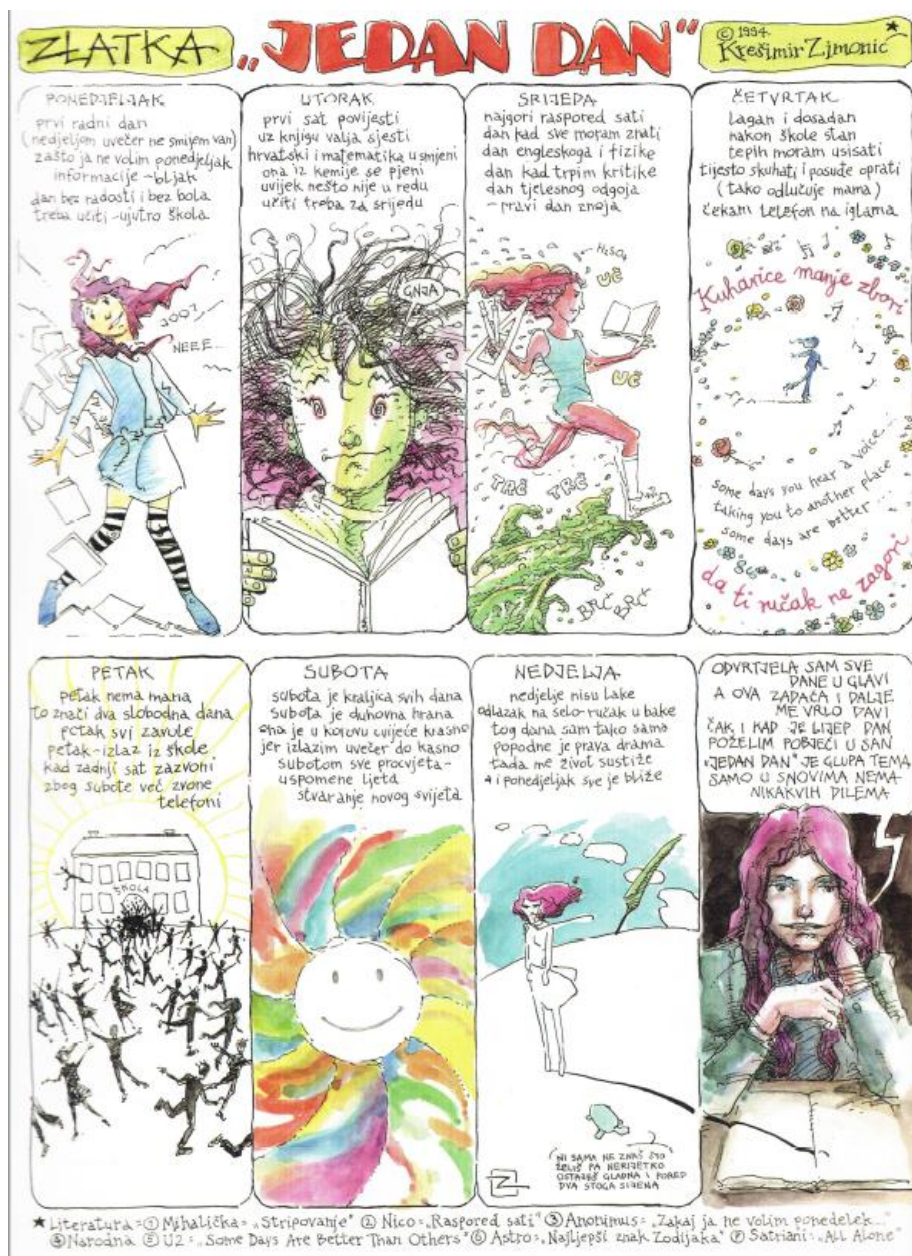 ZLATKA
„JEDAN DAN“
© 1994.
Krešimir Zimonić *
PONEDJELJAK
prvi radni dan
(nedjeljom uvečer ne smijem van)
zašto ja ne volim ponedjeljak
informacije - bljak
dan bez radosti i bez bola
treba učiti - ujutro škola
JOOJ
NEEE...
UTORAK
prvi sat povijesti
uz knjigu valja sjesti
hrvatski i matematika u smjeni
ona iz kemije se pjeni
uvijek nešto nije u redu
učiti treba za srijedu
GNJA
SRIJEDA
najgori raspored sati
dan kad sve moram znati
dan engleskoga i fizike
dan kad trpim kritike
dan tjelesnog odgoja
- pravi dan znoja
H₂SO₄
UČ
UČ
TRČ TRČ
BRČ BRČ
ČETVRTAK
Lagan i dosadan
nakon škole stan
tepih moram usisati
tijesto skuhati i posuđe oprati
(tako odlučuje mama)
čekam telefon na iglama
Kuharice manje zbori
some days you hear a voice...
taking you to another place
some days are better...
da ti ručak ne zagori
PETAK
petak nema mana
to znači dva slobodna dana
petak svi zavole
petak - izlaz iz škole
kad zadnji sat zazvoni
zbog subote već zvone
telefoni
ŠKOLA
SUBOTA
subota je kraljica svih dana
subota je duhovna hrana
ona je u korovu cvijeće krasno
jer izlazim uvečer do kasno
subotom sve procvjeta -
uspomene ljeta
stvaranje novog svijeta
NEDJELJA
nedjelje nisu lake
odlazak na selo - ručak u bake
tog dana sam tako sama
popodne je prava drama
tada me život sustiže
a i ponedjeljak sve je bliže
NI SAMA NE ZNAŠ ŠTO
ŽELIŠ PA NERIJETKO
OSTAJEŠ GLADNA I PORED
DVA STOGA SIJENA
ODVRTJELA SAM SVE
DANE U GLAVI
A OVA ZADAĆA I DALJE
ME VRLO DAVI
ČAK I KAD JE LIJEP DAN
POŽELIM POBJEĆI U SAN
„JEDAN DAN“ JE GLUPA TEMA
SAMO U SNOVIMA NEMA
NIKAKVIH DILEMA
* Literatura: ① Mihalička: „Stripovanje“ ② Nico: „Raspored sati“ ③ Anonimus: „Zakaj ja ne volim ponedelek...“
④ Narodna ⑤ U2: „Some Days Are Better Than Others“ ⑥ Astro: „Najljepši znak Zodijaka“ ⑦ Satriani: „All Alone“